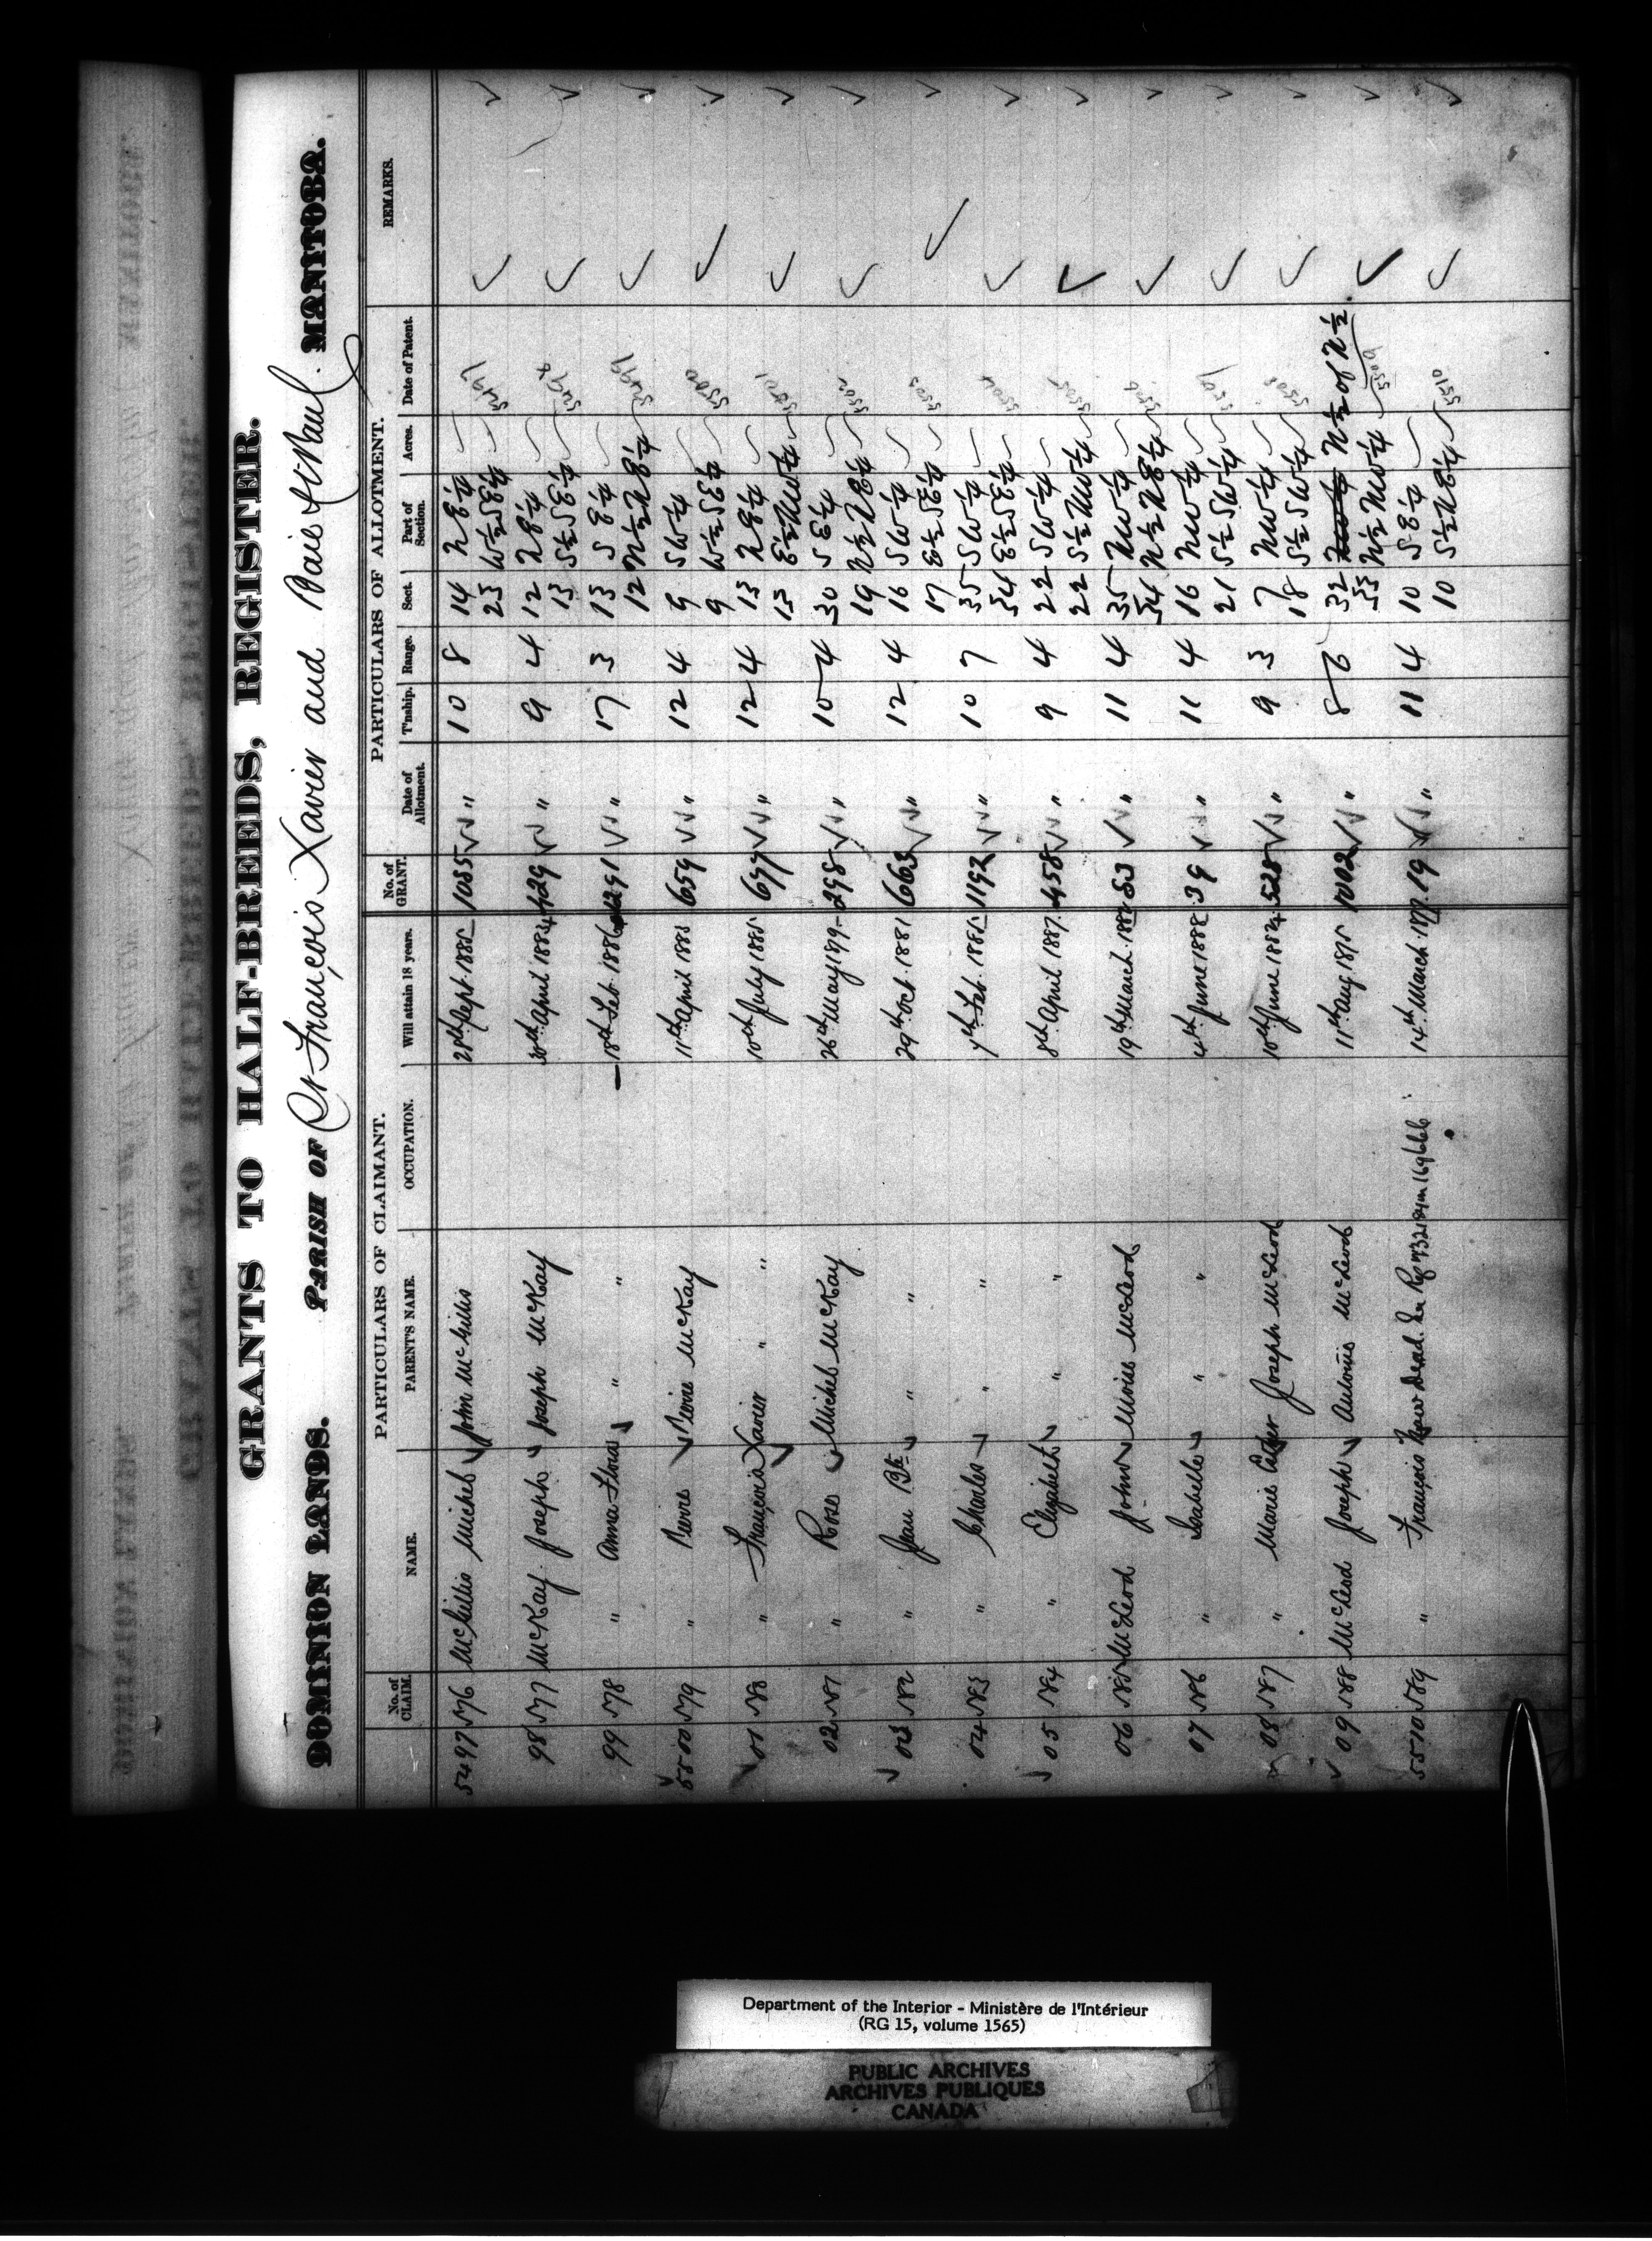 GRANTS TO HALF-BREEDS, REGISTER.
DOMINION LANDS. PARISH OF St François Xavier and Baie St Paul. MANITOBA.
PARTICULARS OF CLAIMANT. PARTICULARS OF ALLOTMENT.
No. of CLAIM. NAME. PARENT'S NAME. OCCUPATION. Will attain 18 years. No. of GRANT. Date of Allotment. T'nship. Range. Sect. Part of Section. Acres. Date of Patent. REMARKS.
5497 576 McGillis Michel ✓ John McGillis 28th Sept. 1885 1055 ✓✓ " 10 8 14 NE¼
23 W½SE¼ 5497
98 577 McKay Joseph ✓ Joseph McKay 30th April 1884 ✓✓ " 9 4 12 NE¼
13 S½SE¼ 5498
99 578 " Anna Flora ✓ " " 18th Feb. 1886 ✓✓ " 17 3 13 SE¼
12 N½NE¼ 5499
5500 579 " Pierre ✓ Pierre McKay 11th April 1885 659 ✓✓ " 12 4 9 SW¼
9 W½SE¼ 5500
01 580 " François Xavier ✓ " " 10th July 1885 677 ✓✓ " 12 4 13 NE¼
13 E½NW¼ 5501
02 581 " Rose ✓ Michel McKay 26th May 1879 298 ✓✓ " 10 4 30 SE¼
19 N½NE¼ 5502
03 582 " Jean Bte ✓ " " 29th Oct. 1881 663 ✓✓ " 12 4 16 SW¼
17 E½SE¼ 5503
04 583 " Charles ✓ " " 7th Feb. 1885 1192 ✓✓ " 10 7 35 SW¼
34 E½SE¼ 5504
05 584 " Elizabeth ✓ " " 8th April 1887 458 ✓✓ " 9 4 22 SW¼
22 S½NW¼ 5505
06 585 McLeod John ✓ Moise McLeod 19th March 83 ✓✓ " 11 4 35 NW¼
34 N½NE¼
07 586 " Isabelle ✓ " " 4th June 1888 39 ✓✓ " 11 4 16 NW¼
21 S½SW¼ 5507
08 587 " Marie Joseph McLeod 10th June 1884 528 ✓✓ " 9 3 7 NW¼
18 S½SW¼ 5508
09 588 McLeod Joseph ✓ Antoine McLeod 11th Aug 1875 1002 ✓✓ " 8 6 32 NW¼ N½ of N½.
33 N½NW¼ 5509
5510 589 " François Now Dead. 14th March 1877 19 ✓✓ " 11 4 10 SE¼
10 S½NE¼ 5510
Department of the Interior - Ministère de l'Intérieur
(RG 15, volume 1565)
PUBLIC ARCHIVES
ARCHIVES PUBLIQUES
CANADA